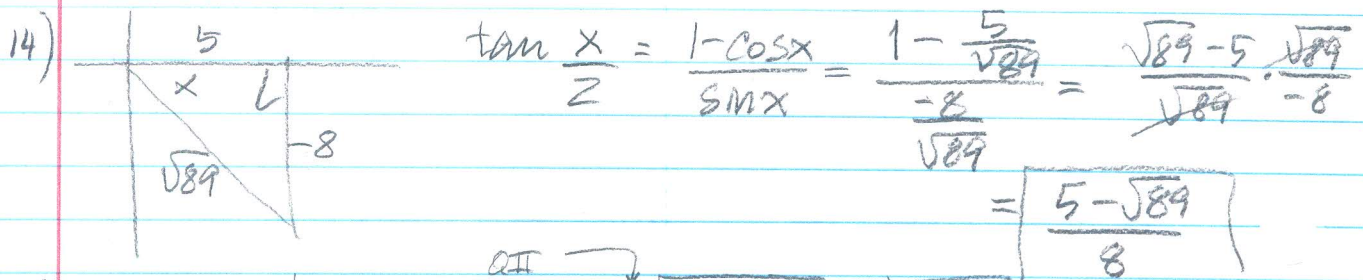 14)
5
x
√89
-8
tan x/2 = 1-cosx/sinx = 1 - 5/√89 / -8/√89 = √89 - 5/√89 · √89/-8
= 5-√89/8
QII